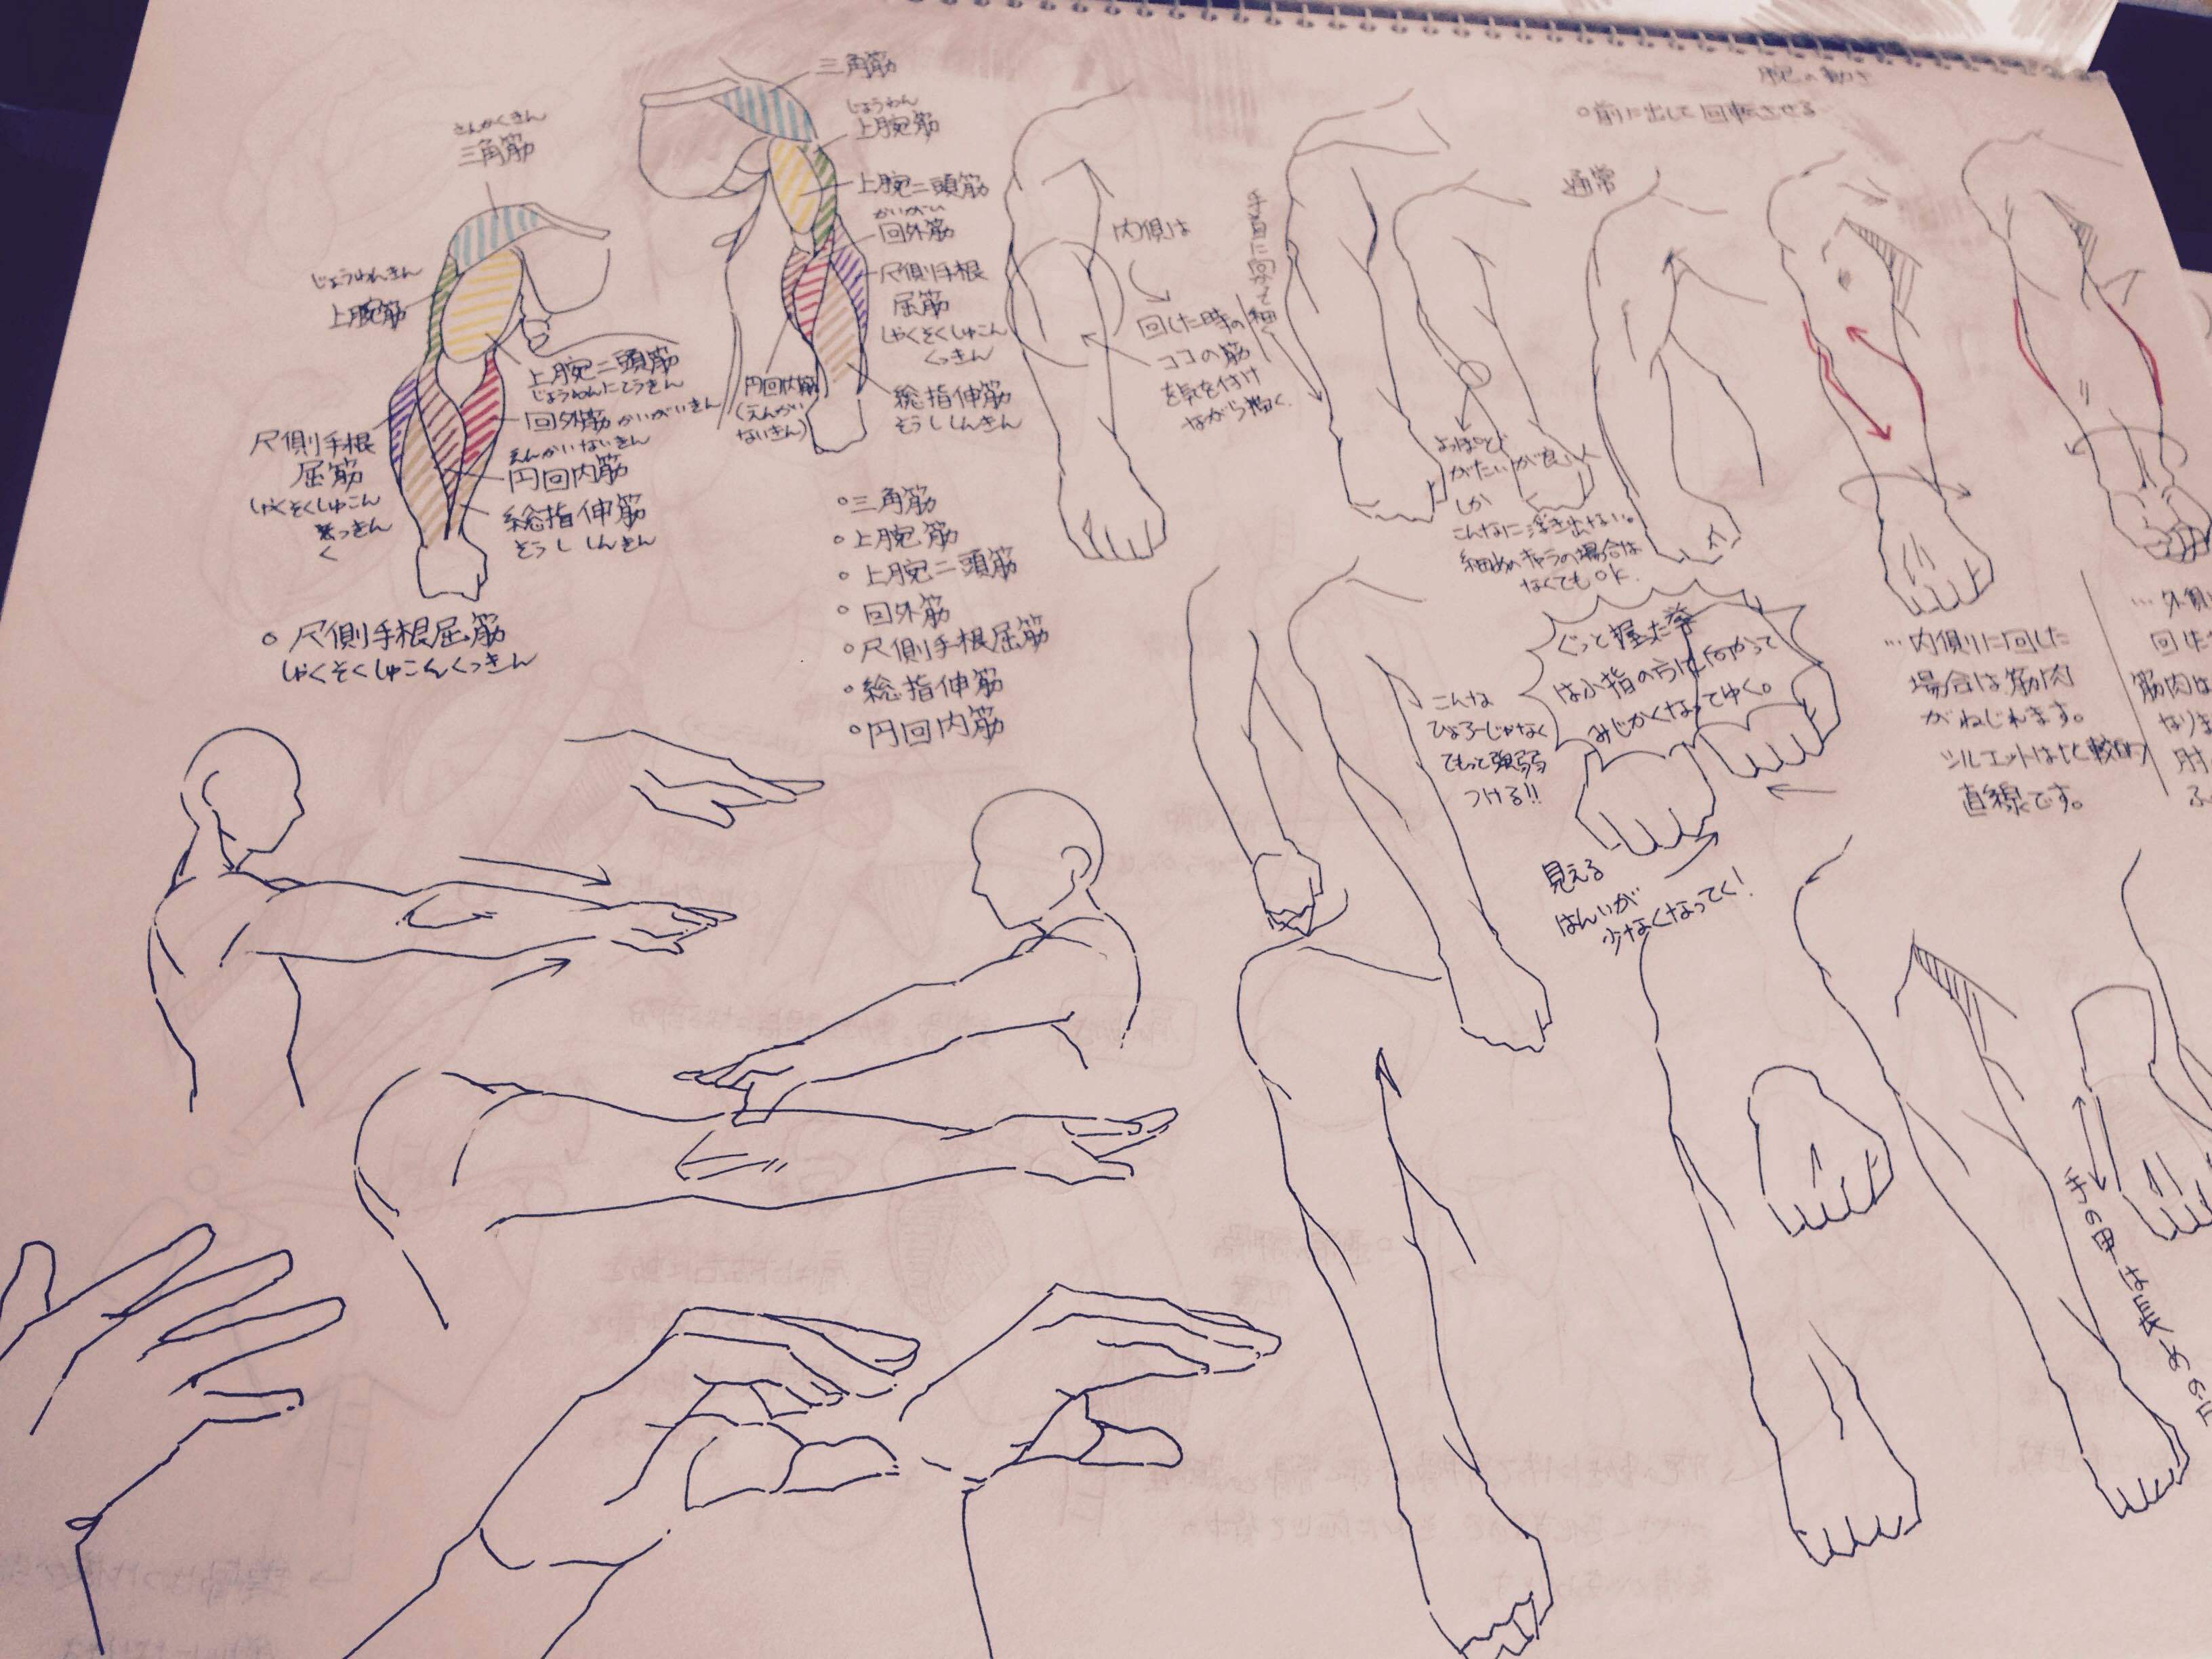 さんかくきん
三角筋
じょうわんきん
上腕筋
上腕二頭筋
じょうわんにとうきん
回外筋 かいがいきん
えんかいないきん
円回内筋
総指伸筋
そうししんきん
尺側手根
屈筋
しゃくそくしゅこん
っきん
く
○尺側手根屈筋
しゃくそくしゅこんくっきん
三角筋
じょうわん
上腕筋
上腕二頭筋
かいがい
回外筋
尺側手根
屈筋
しゃくそくしゅこん
くっきん
円回内筋
(えんかい
ないきん)
総指伸筋
そうししんきん
○三角筋
○上腕筋
○上腕二頭筋
○回外筋
○尺側手根屈筋
○総指伸筋
○円回内筋
内側は
回した時の
ココの筋
を気を付け
ながら描く
腕の動き
○前に出して回転させる
通常
よっぽど
がたいが良い人
しか
こんなに浮き出ない。
細めのキャラの場合は
なくてもok.
こんな
ひょろーじゃなく
てもって強弱
つける!!
ぐっと握った拳
は小指の方に向かって
みじかくなってゆく。
見える
はんいが
少なくなってく!
…内側に回した
場合は筋肉
がねじれます。
シルエットは比較的
直線です。
…外側
回した
筋肉は
なりま
肘
ふ
手の甲は長めの